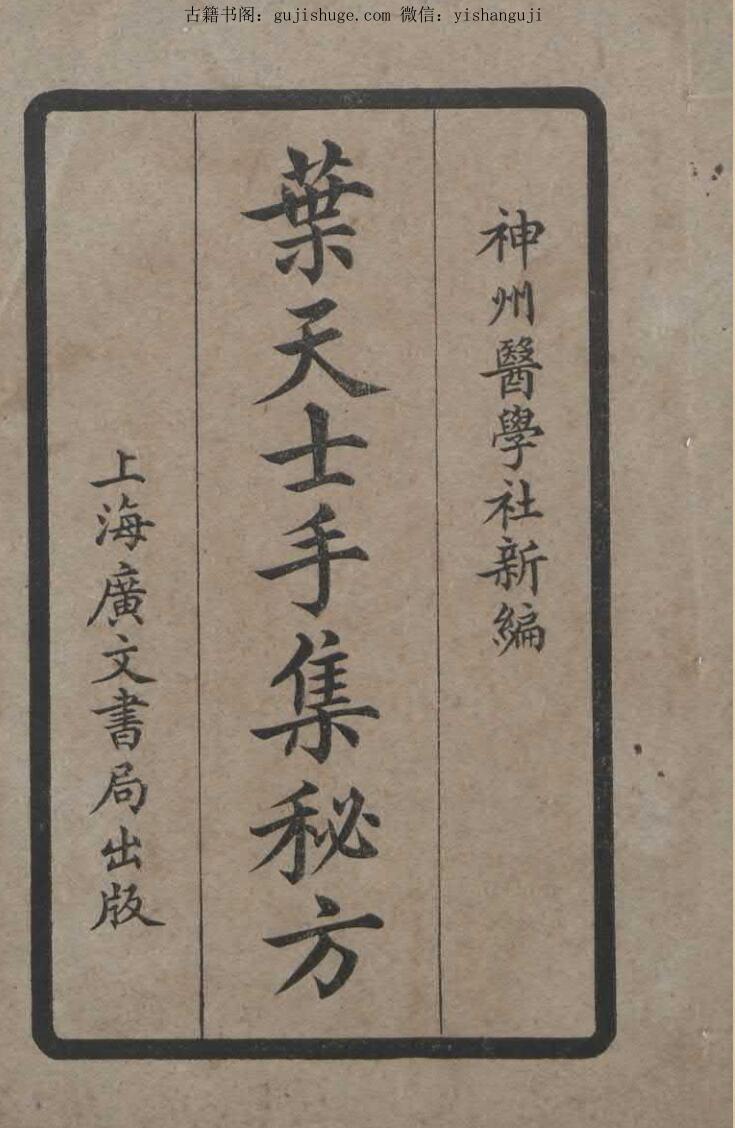 古籍书阁：gujishuge.com 微信：yishanguji
神州醫學社新編
葉天士手集秘方
上海廣文書局出版